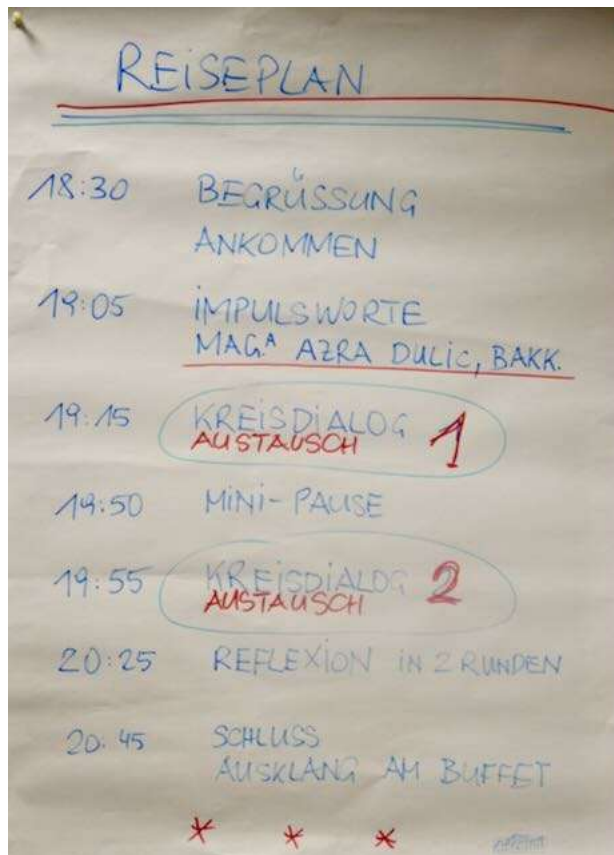 REISEPLAN
18:30 BEGRÜSSUNG
ANKOMMEN
19:05 IMPULSWORTE
MAG.A AZRA DULIC, BAKK.
19:15 KREISDIALOG 1
AUSTAUSCH
19:50 MINI-PAUSE
19:55 KREISDIALOG 2
AUSTAUSCH
20:25 REFLEXION IN 2 RUNDEN
20.45 SCHLUSS
AUSKLANG AM BUFFET
* * *